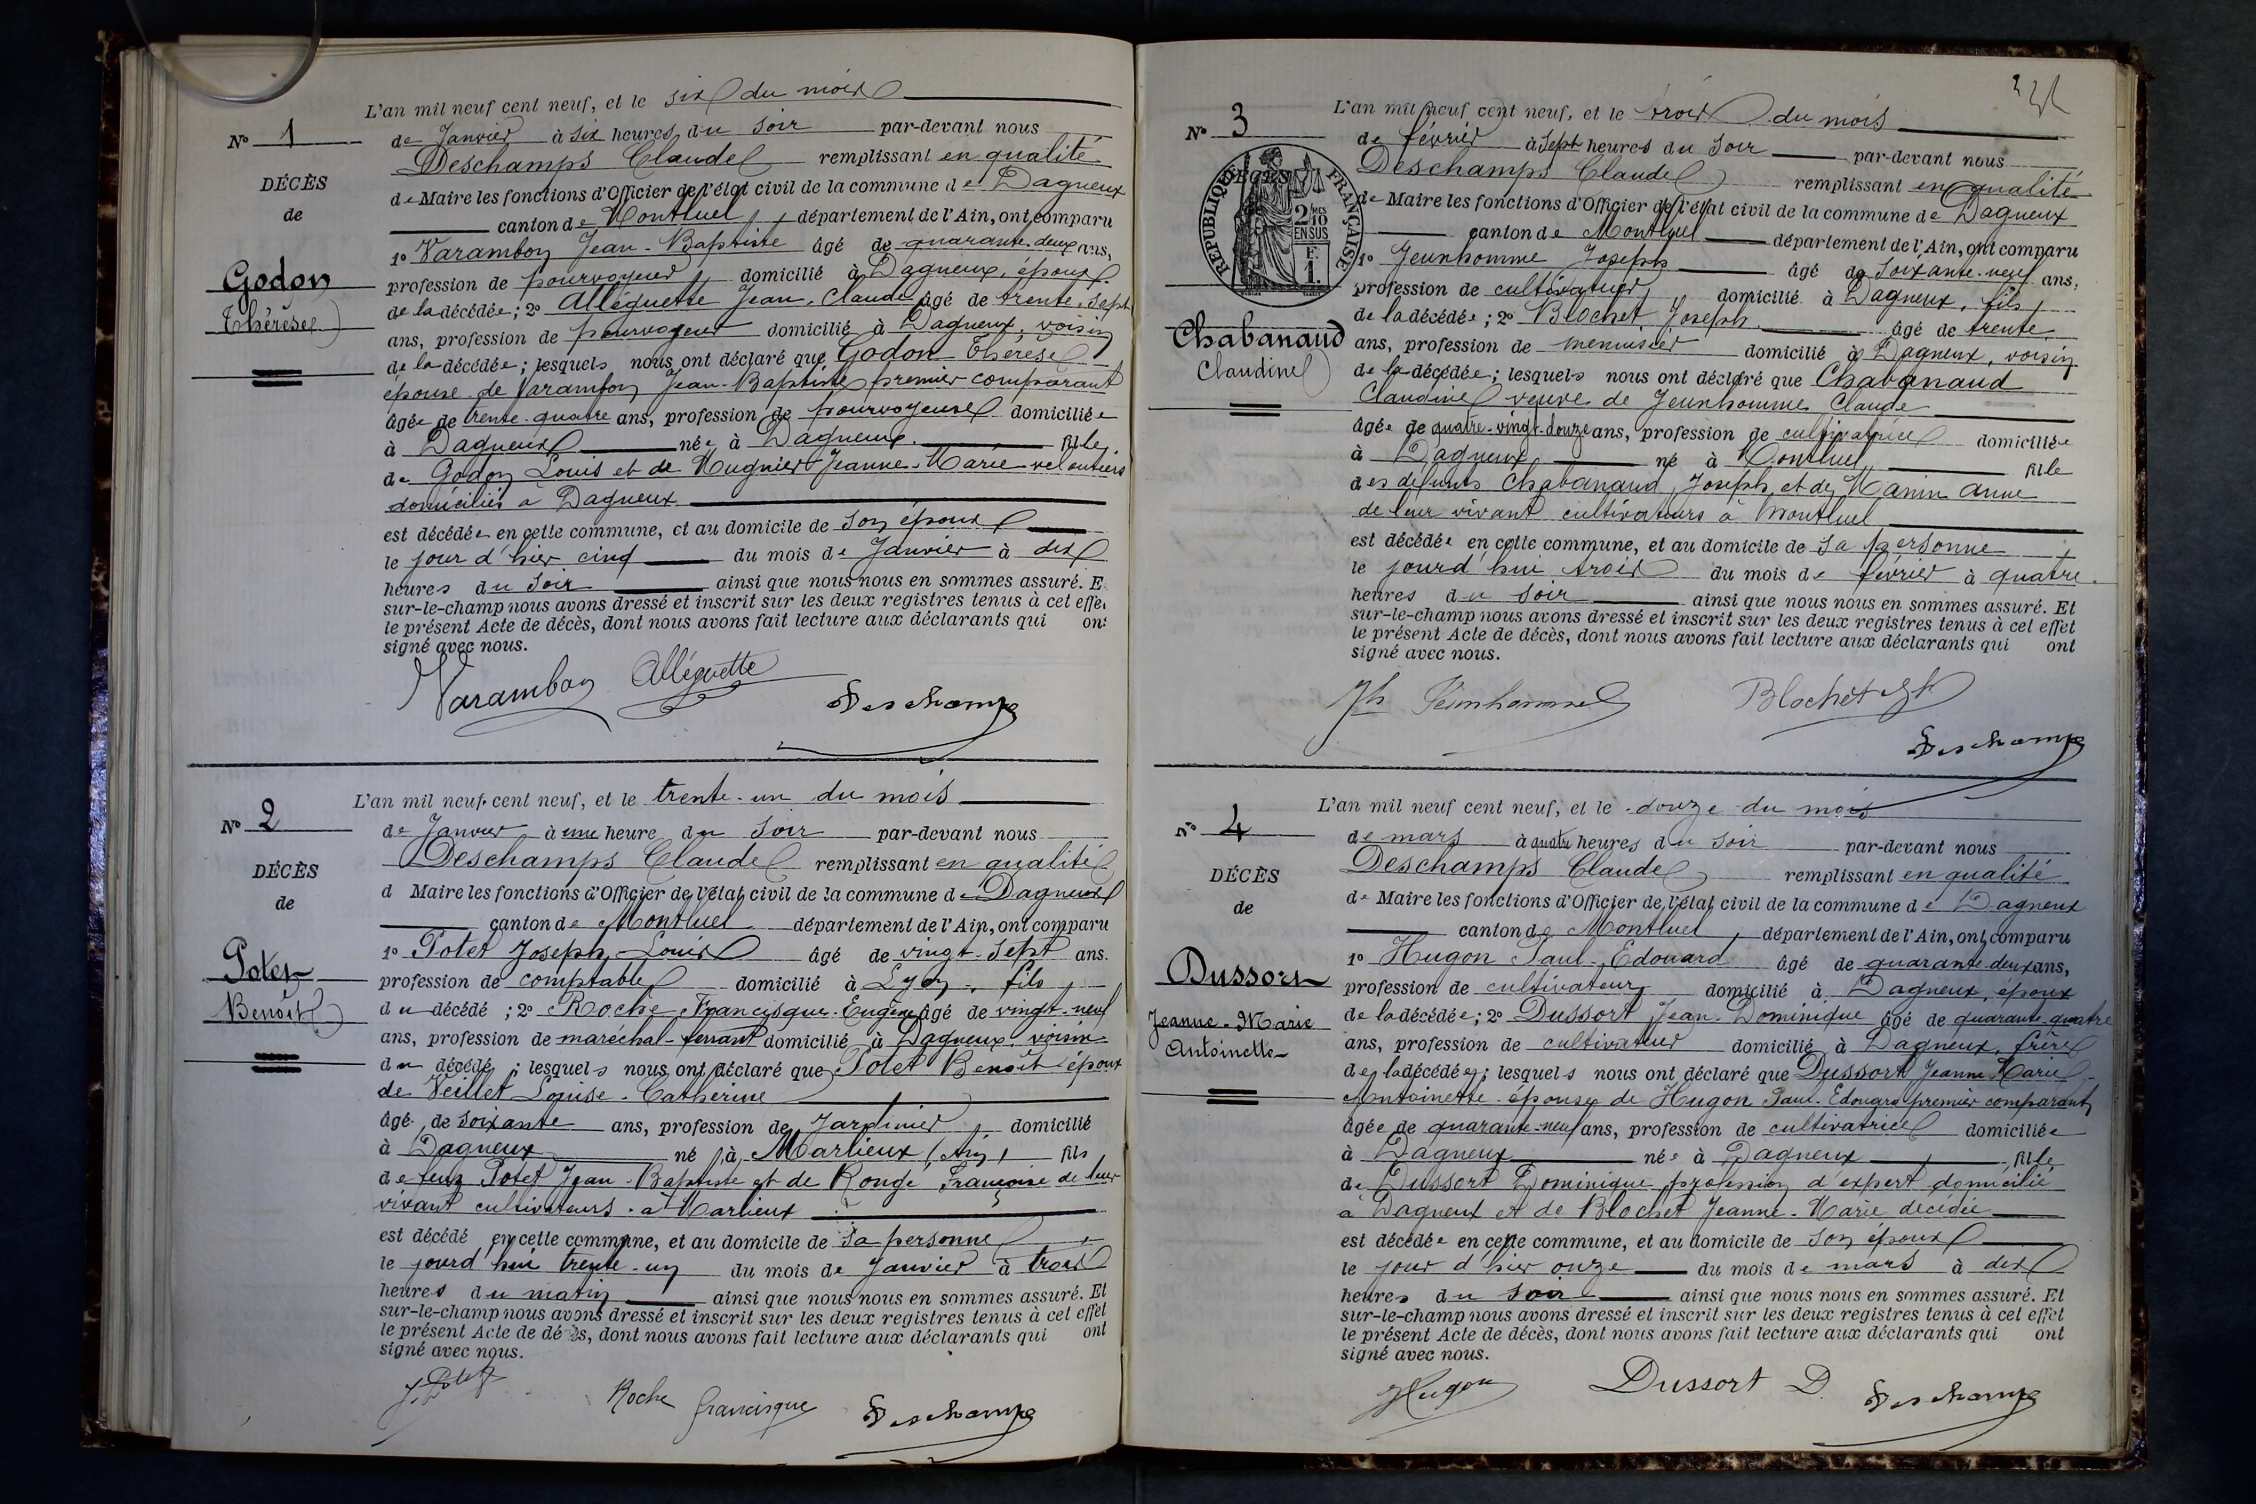 L'an mil neuf cent neuf, et le six du mois
No 1
de Janvier à six heures du soir par-devant nous
Deschamps Claude remplissant en qualité
DÉCÈS
de Maire les fonctions d'Officier de l'état civil de la commune de Dagneux
de
canton de Montluel, département de l'Ain, ont comparu
1o Varambon Jean-Baptiste âgé de quarante-deux ans,
Godon
profession de pourvoyeur, domicilié à Dagneux, époux
Thérèse
de la décédée; 2o Alléguette Jean-Claude âgé de trente-sept
ans, profession de pourvoyeur domicilié à Dagneux, voisin
de la décédée; lesquels nous ont déclaré que Godon Thérèse
épouse de Varambon Jean-Baptiste premier comparant
âgée de trente-quatre ans, profession de pourvoyeuse domiciliée
à Dagneux née à Dagneux. fille
de Godon Louis et de Mugnier Jeanne-Marie veloutiers
domiciliés à Dagneux
est décédée en cette commune, et au domicile de son époux
le jour d'hier cinq du mois de Janvier à dix
heures du soir ainsi que nous nous en sommes assuré. E
sur-le-champ nous avons dressé et inscrit sur les deux registres tenus à cet effe
le présent Acte de décès, dont nous avons fait lecture aux déclarants qui on
signé avec nous.
Varambon Alléguette
Deschamps
L'an mil neuf cent neuf, et le trente-un du mois
No 2
de Janvier à une heure du soir par-devant nous
Deschamps Claude remplissant en qualité
DÉCÈS
d Maire les fonctions d'Officier de l'état civil de la commune de Dagneux
de
canton de Montluel département de l'Ain, ont comparu
1o Potet Joseph-Louis âgé de vingt-sept ans.
Potet
profession de comptable domicilié à Lyon, fils
Benoît
du décédé; 2o Roche Francisque-Eugène âgé de vingt-neuf
ans, profession de maréchal-ferrant domicilié à Dagneux, voisin
du décédé; lesquels nous ont déclaré que Potet Benoît époux
de Veillet Louise-Catherine
âgé de soixante ans, profession de Jardinier, domicilié
à Dagneux né à Marlieux (Ain) fils
de feux Potet Jean-Baptiste et de Rongé Françoise de leur
vivant cultivateurs à Marlieux
est décédé en cette commune, et au domicile de sa personne
le jourd'hui trente-un du mois de Janvier à trois
heures du matin ainsi que nous nous en sommes assuré. Et
sur-le-champ nous avons dressé et inscrit sur les deux registres tenus à cet effet
le présent Acte de décès, dont nous avons fait lecture aux déclarants qui ont
signé avec nous.
J. Potet
Roche francisque Deschamps
L'an mil neuf cent neuf, et le trois du mois
No 3
de février à sept heures du soir par-devant nous
Deschamps Claude remplissant en qualité
RÉPUBLIQUE FRANÇAISE
2/10 EN SUS
1
de Maire les fonctions d'Officier de l'état civil de la commune de Dagneux
canton de Montluel département de l'Ain, ont comparu
1o Jeunhomme Joseph âgé de soixante-neuf ans,
profession de cultivateur, domicilié à Dagneux, fils
de la décédée; 2o Blochet Joseph âgé de trente
Chabanaud
ans, profession de menuisier domicilié à Dagneux, voisin
Claudine
de la décédée; lesquels nous ont déclaré que Chabanaud
Claudine veuve de Jeunhomme Claude
âgée de quatre-vingt-douze ans, profession de cultivatrice domiciliée
à Dagneux né à Montluel, fille
des défunts Chabanaud Joseph et de Manin Anne
de leur vivant cultivateurs à Montluel
est décédée en cette commune, et au domicile de sa personne
le jourd'hui trois du mois de février à quatre
heures du soir ainsi que nous nous en sommes assuré. Et
sur-le-champ nous avons dressé et inscrit sur les deux registres tenus à cet effet
le présent Acte de décès, dont nous avons fait lecture aux déclarants qui ont
signé avec nous.
Jh Jeunhomme Blochet Jh
Deschamps
L'an mil neuf cent neuf, et le douze du mois
No 4
de mars à quatre heures du soir par-devant nous
Deschamps Claude remplissant en qualité
DÉCÈS
de Maire les fonctions d'Officier de l'état civil de la commune de Dagneux
de
canton de Montluel, département de l'Ain, ont comparu
1o Hugon Paul-Edouard âgé de quarante-deux ans,
Dussort
profession de cultivateur, domicilié à Dagneux, époux
Jeanne-Marie
de la décédée; 2o Dussort Jean-Dominique âgé de quarante-quatre
Antoinette
ans, profession de cultivateur domicilié à Dagneux, frère
de la décédée; lesquels nous ont déclaré que Dussort Jeanne Marie
Antoinette épouse de Hugon Paul-Edouard premier comparant
âgée de quarante-neuf ans, profession de cultivatrice domiciliée
à Dagneux née à Dagneux, fille
de Dussort Dominique profession d'expert domicilié
à Dagneux et de Blochet Jeanne-Marie décédée
est décédée en cette commune, et au domicile de son époux
le jour d'hier onze du mois de mars à dix
heures du soir ainsi que nous nous en sommes assuré. Et
sur-le-champ nous avons dressé et inscrit sur les deux registres tenus à cet effet
le présent Acte de décès, dont nous avons fait lecture aux déclarants qui ont
signé avec nous.
Hugon Dussort D. Deschamps